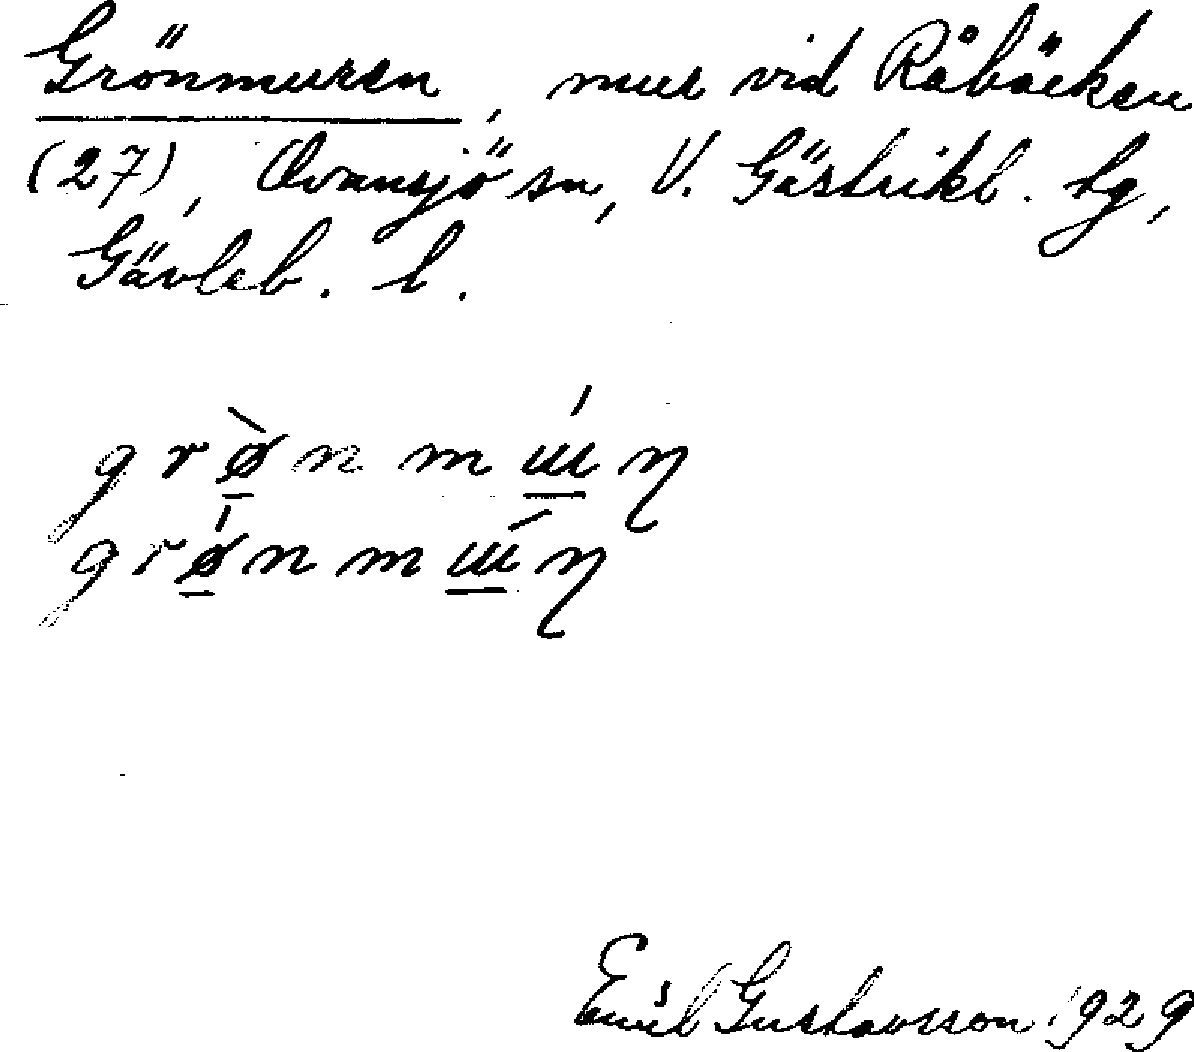 Grönmuren, mur vid Råbäcken
(27), Ovansjö sn, V. Gästrikl. tg,
Gävleb. l.
grø̱̀n mɯ̱́ŋ
grǿ̱n mɯ̱́ŋ
Emil Gustavsson 1929